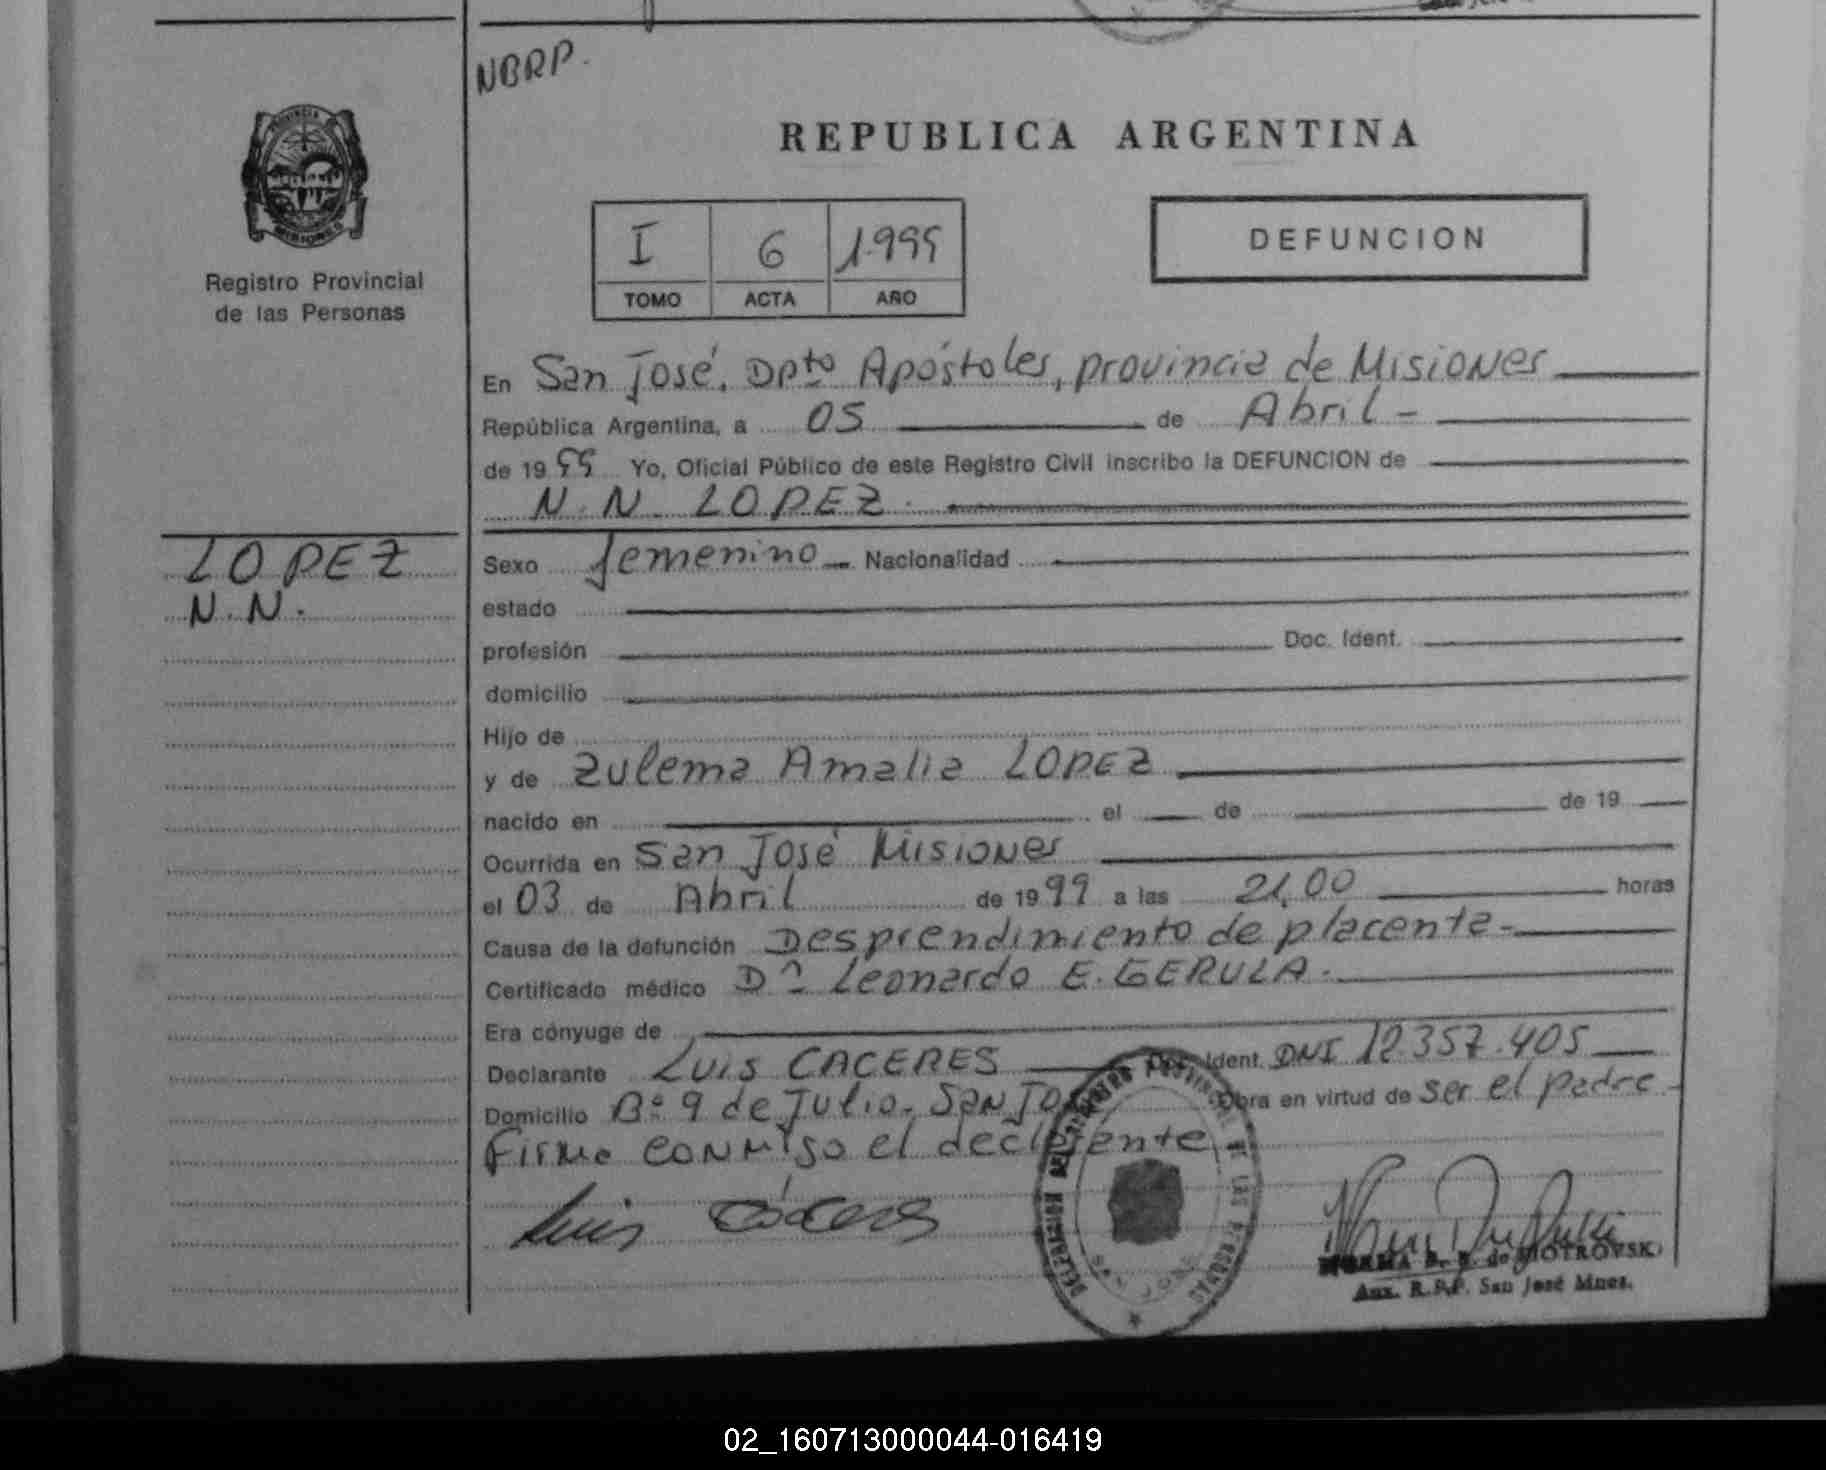 NBRP.
PROVINCIA
MISIONES
Registro Provincial
de las Personas
REPUBLICA ARGENTINA
I 6 1.999
TOMO ACTA AÑO
DEFUNCION
En San José, Dpto Apóstoles, provincia de Misiones
República Argentina, a 05 de Abril -
de 1999 Yo, Oficial Público de este Registro Civil inscribo la DEFUNCION de
N.N. LOPEZ.
LOPEZ
N.N.
Sexo femenino Nacionalidad
estado
profesión Doc. Ident.
domicilio
Hijo de
y de Zulema Amalia LOPEZ
nacido en el de de 19
Ocurrida en San José Misiones
el 03 de Abril de 1999 a las 21,00 horas
Causa de la defunción Desprendimiento de placenta-
Certificado médico Dn Leonardo E. GERULA.
Era cónyuge de
Declarante Luis CACERES Doc. Ident. DNI 12.357.405
Domicilio B° 9 de Julio. San Jo Obra en virtud de ser el padre
Firma conmigo el declarente
Luis Cáceres
DELEGACION REGISTRO PROVINCIAL DE LAS PERSONAS
SAN JOSE
NORMA B. R. de PIOTROVSKI
Aux. R.P.P. San José Mnes.
02_160713000044-016419